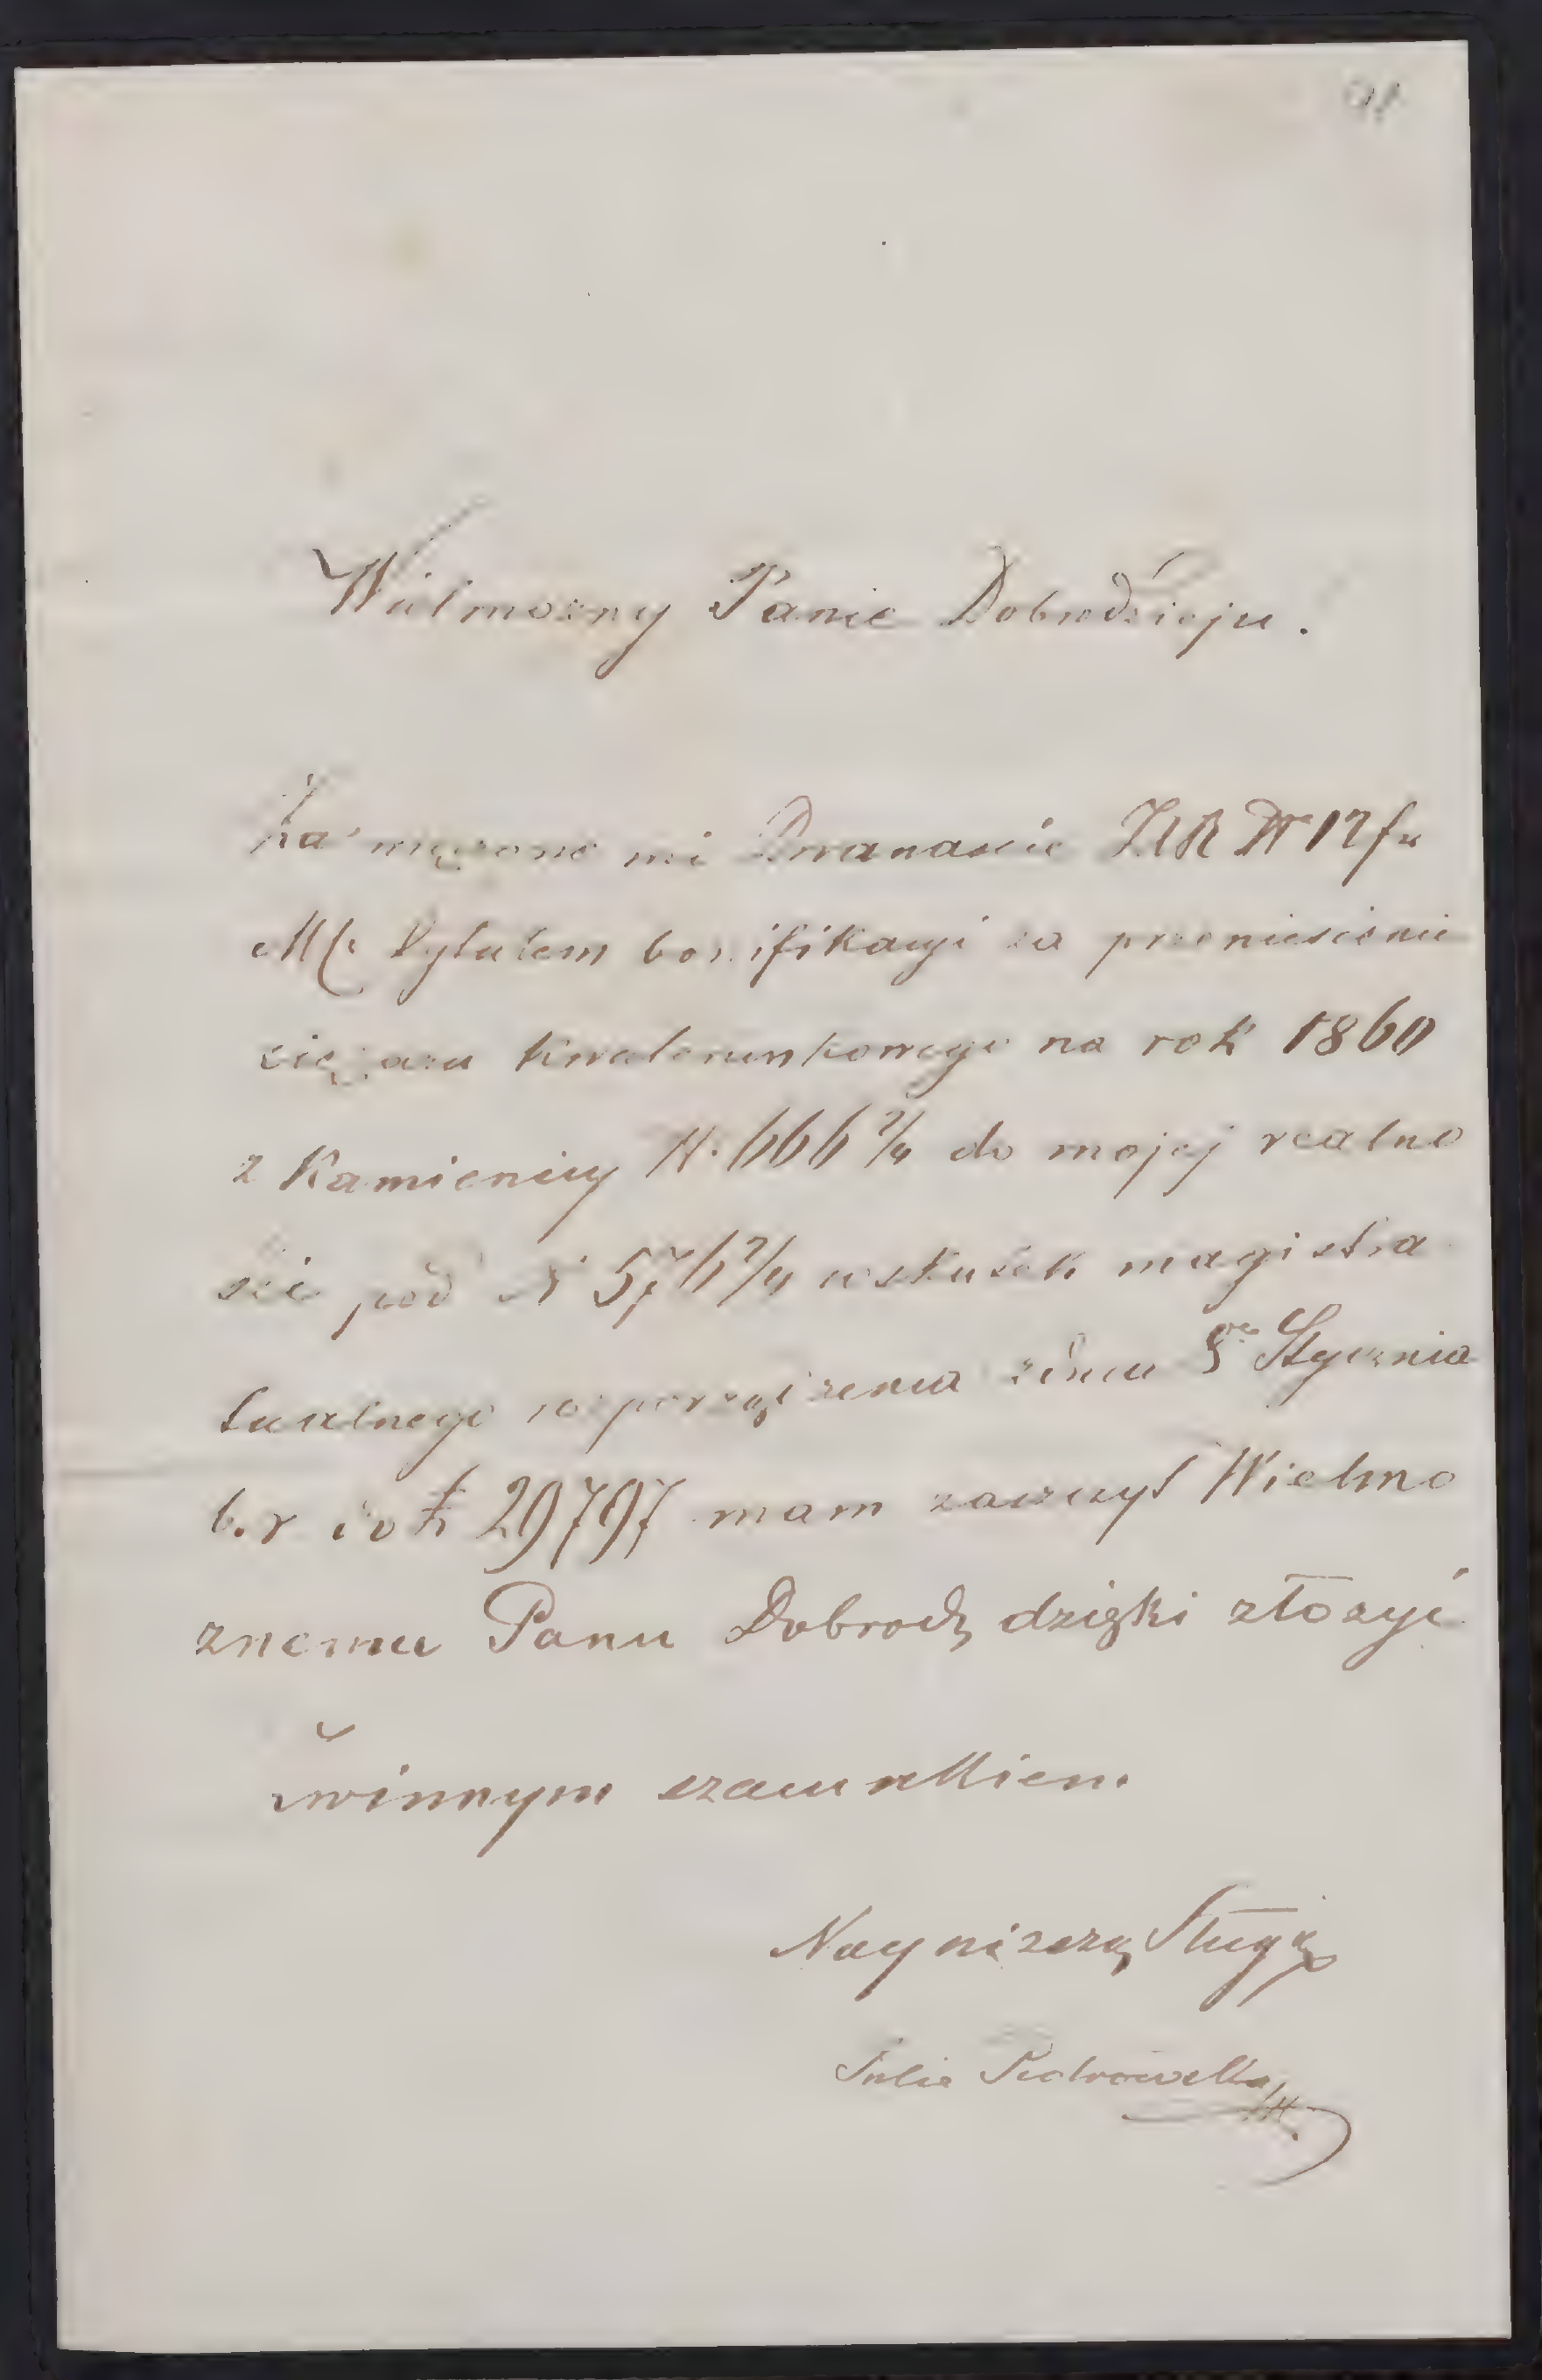 Wielmozny Panie Dobrodzieju.
Za wręczone mi Dwanascie ZłR Nr 12 fr
MC tytulem bonifikacyi za przeniesienie
cięzaru kwaterunkowego na rok 1860
z Kamienicy N. 666 2/4 do mojej realno
sci pod N 576 2/4 wskutek magistra
tualnego rozporządzenia zdnia 5go Stycznia
b. r do L 29797 mam zaszczyt Wielmo
znemu Panu Dobrodz dzięki złozyć
zwinnym szacunkiem
Nayniższą Sługą
Julia Piotrowska